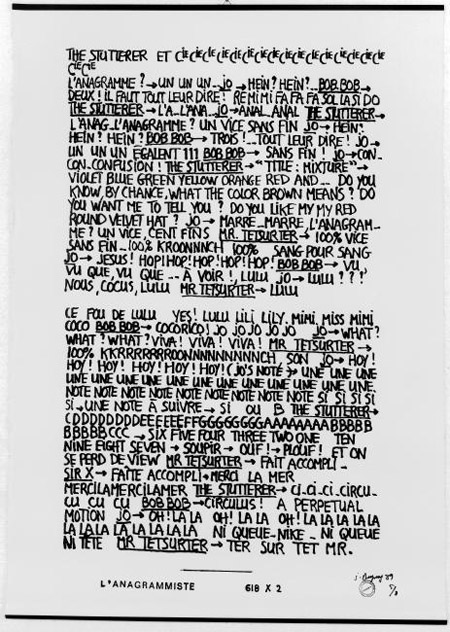 THE STUTTERER ET CIE CIE CIE CIE CIE CIE CIE CIE CIE CIE CIE CIE CIE CIE CIE
CIE CIE
L'ANAGRAMME? → UN UN UN.. JO → HEIN? HEIN?.. BOB BOB →
DEUX! IL FAUT TOUT LEUR DIRE! RE MI MI FA FA FA SOL LA SI DO
THE STUTTERER → L'A.. L'ANA.. JO → ANAL.. ANAL THE STUTTERER →
L'ANAG.. L'ANAGRAMME? UN VICE SANS FIN JO → HEIN?
HEIN? HEIN? BOB BOB → TROIS!.. TOUT LEUR DIRE! JO →
UN UN UN EGALENT 111 BOB BOB → SANS FIN! JO → CON..
CON..CONFUSION! THE STUTTERER → "TITLE: MIXTURE" →
VIOLET BLUE GREEN YELLOW ORANGE RED AND... DO YOU
KNOW, BY CHANCE, WHAT THE COLOR BROWN MEANS? DO
YOU WANT ME TO TELL YOU? DO YOU LIKE MY MY RED
ROUND VELVET HAT? JO → MARRE.. MARRE, L'ANAGRAM-
ME? UN VICE, CENT FINS MR. TETSURTER → 100% VICE
SANS FIN.. 100% KROONNNCH 100% SANG POUR SANG
JO → JESUS! HOP! HOP! HOP! HOP! HOP! BOB BOB → VU,
VU QUE, VU QUE -- À VOIR!, LULU JO → LULU???
NOUS, COCUS, LULU MR TETSURTER → LULU
CE FOU DE LULU YES! LULU LILI LILY. MIMI, MISS MIMI
COCO BOB BOB → COCORICO! JO JO JO JO JO JO → WHAT?
WHAT? WHAT? VIVA! VIVA! VIVA! MR TETSURTER →
100% KRKRRRRRROONNNNNNNNNCH, SON JO → HOY!
HOY! HOY! HOY! HOY! HOY! (JO'S NOTE) → UNE UNE UNE
UNE UNE UNE UNE UNE UNE UNE UNE UNE UNE UNE.
NOTE NOTE NOTE NOTE NOTE NOTE NOTE NOTE SI SI SI SI
SI → UNE NOTE À SUIVRE → SI OU B THE STUTTERER →
CDDDDDDDDEEEEEEFFGGGGGGGGAAAAAAAABBBBB
BBBBBCCC → SIX FIVE FOUR THREE TWO ONE TEN
NINE EIGHT SEVEN → SOUPIR → OUF! → PLOUF! ET ON
SE PERD DE VIEW MR TETSURTER → FAIT ACCOMPLI..
SIR X → FAITE ACCOMPLI → MERCI LA MER
MERCILAMERCILAMER THE STUTTERER → CI..CI..CIRCU..
CU CU CU BOB BOB → CIRCULUS! A PERPETUAL
MOTION JO → OH! LA LA OH! LA LA OH! LA LA LA LA LA
LA LA LA LA LA LA LA LA NI QUEUE..NIKE.. NI QUEUE
NI TÊTE MR TETSURTER → TER SUR TET MR.
L'ANAGRAMMISTE 618 X 2